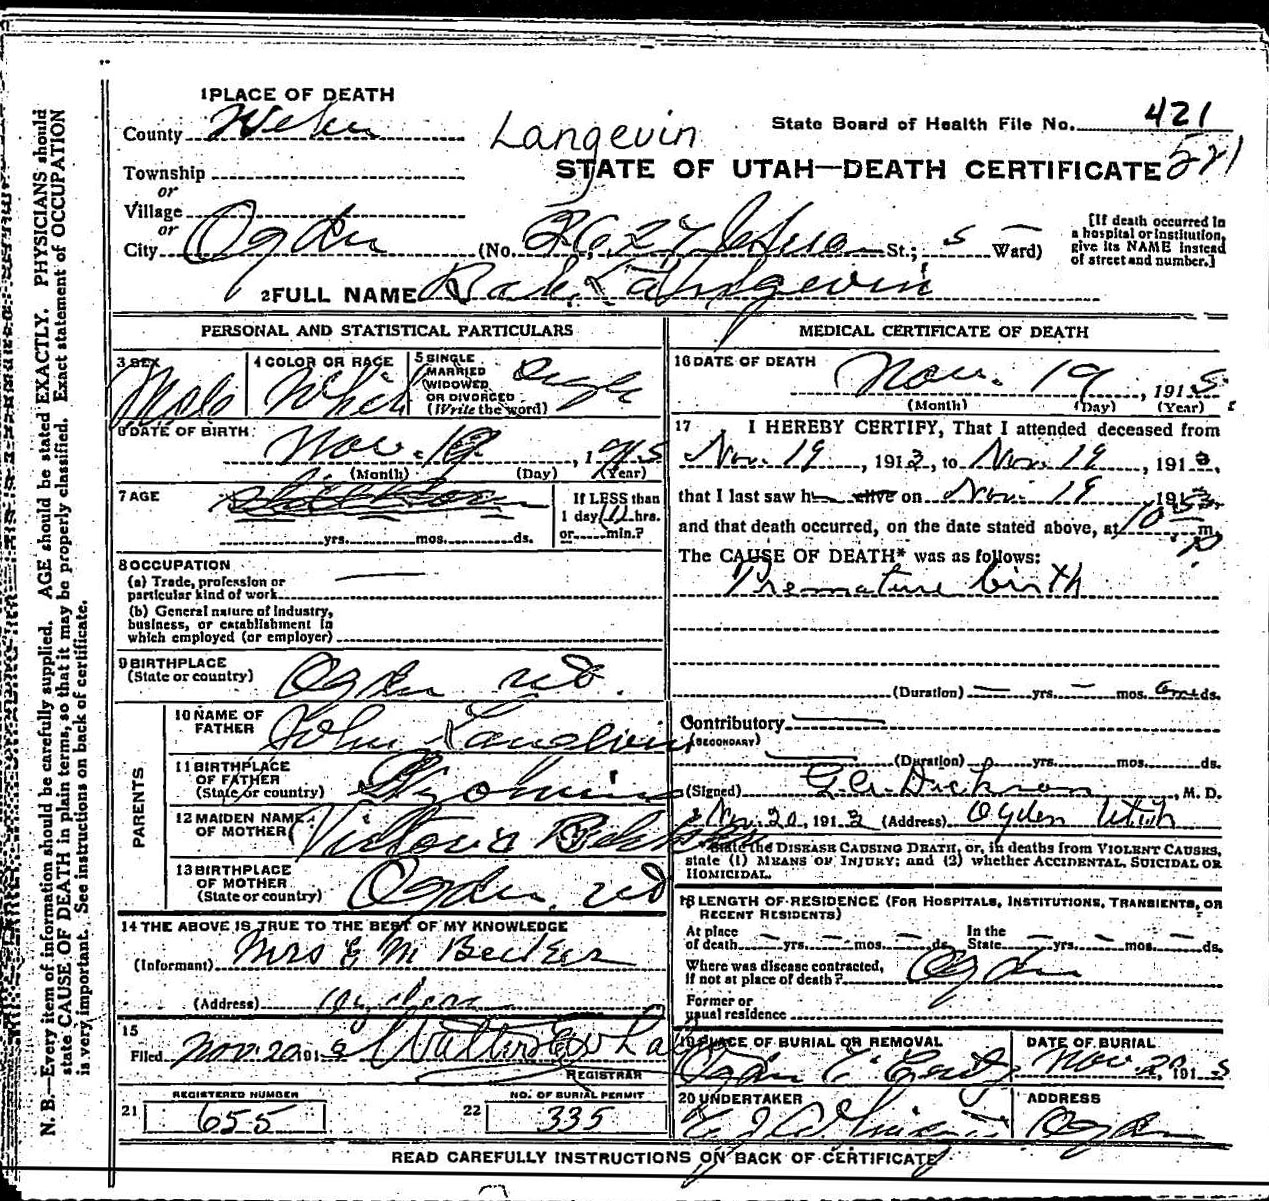 1 PLACE OF DEATH
County Weber
Langevin
State Board of Health File No. 421
521
Township
STATE OF UTAH—DEATH CERTIFICATE
or
Village
or
City Ogden (No. 2627 St.; 5 Ward)
[If death occurred in a hospital or institution, give its NAME instead of street and number.]
2 FULL NAME Langevin
PERSONAL AND STATISTICAL PARTICULARS
3 SEX Male
4 COLOR OR RACE White
5 SINGLE MARRIED WIDOWED OR DIVORCED (Write the word) Single
6 DATE OF BIRTH Nov. 19, 191
(Month) (Day) (Year)
7 AGE
yrs. mos. ds.
If LESS than 1 day hrs. or min.?
8 OCCUPATION
(a) Trade, profession or particular kind of work
(b) General nature of industry, business, or establishment in which employed (or employer)
9 BIRTHPLACE (State or country) Ogden
PARENTS
10 NAME OF FATHER John Langevin
11 BIRTHPLACE OF FATHER (State or country) Wyoming
12 MAIDEN NAME OF MOTHER Victoria
13 BIRTHPLACE OF MOTHER (State or country) Ogden
14 THE ABOVE IS TRUE TO THE BEST OF MY KNOWLEDGE
(Informant) Mrs E M Becker
(Address) Ogden
15
Filed Nov. 20 191
REGISTRAR
REGISTERED NUMBER
21 655
NO. OF BURIAL PERMIT
22 335
MEDICAL CERTIFICATE OF DEATH
16 DATE OF DEATH Nov. 19, 191
(Month) (Day) (Year)
17 I HEREBY CERTIFY, That I attended deceased from
Nov. 19, 1913, to Nov. 19, 191
that I last saw h alive on Nov. 19 191
and that death occurred, on the date stated above, at 10 m.
The CAUSE OF DEATH* was as follows:
Premature birth
(Duration) — yrs. — mos. ds.
Contributory
(SECONDARY)
(Duration) yrs. mos. ds.
(Signed) Dickson, M. D.
Nov. 20, 1913 (Address) Ogden Utah
*State the DISEASE CAUSING DEATH, or, in deaths from VIOLENT CAUSES, state (1) MEANS OF INJURY; and (2) whether ACCIDENTAL, SUICIDAL OR HOMICIDAL.
18 LENGTH OF RESIDENCE (FOR HOSPITALS, INSTITUTIONS, TRANSIENTS, OR RECENT RESIDENTS)
At place of death — yrs. — mos. — ds. In the State — yrs. — mos. — ds.
Where was disease contracted, if not at place of death? Ogden
Former or usual residence
19 PLACE OF BURIAL OR REMOVAL
Ogden
DATE OF BURIAL
Nov. 20, 191
20 UNDERTAKER
ADDRESS
Ogden
READ CAREFULLY INSTRUCTIONS ON BACK OF CERTIFICATE
N. B.—Every item of information should be carefully supplied. AGE should be stated EXACTLY. PHYSICIANS should
state CAUSE OF DEATH in plain terms, so that it may be properly classified. Exact statement of OCCUPATION
is very important. See instructions on back of certificate.